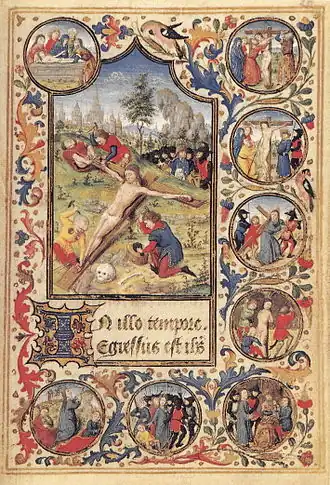 IN illo tempore.
Egressus est ihs